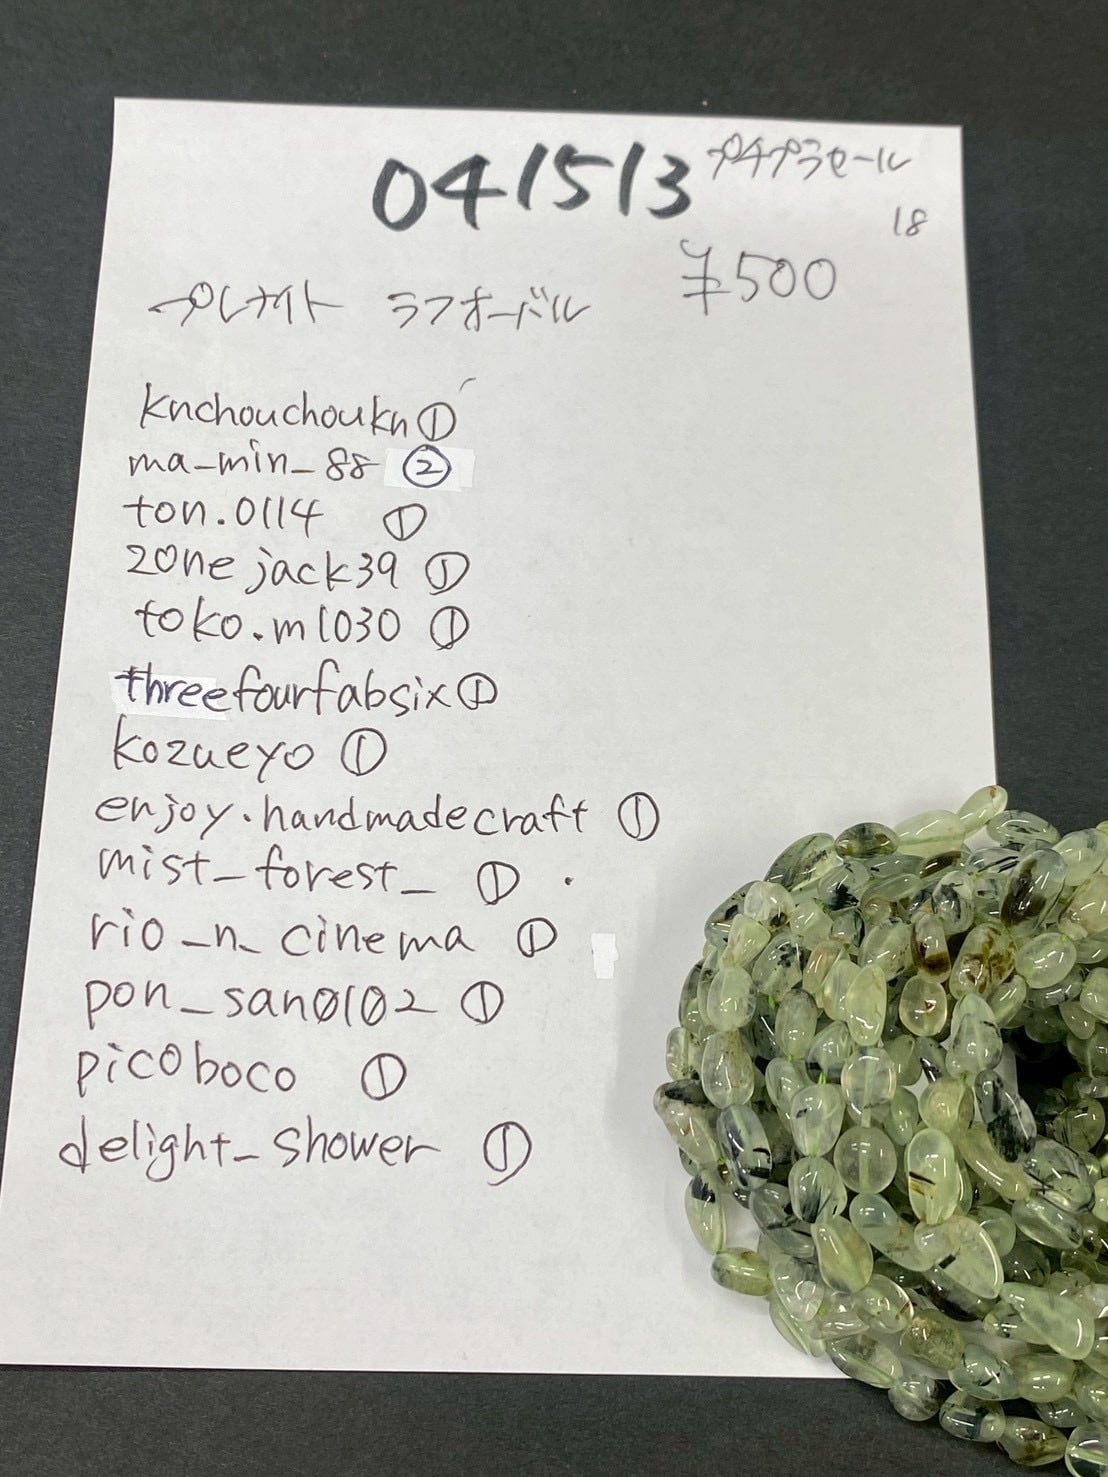 041513 プチプラセール
18
¥500
プレナイト ラフオーバル
knchouchoukn①
ma-min_88 ②
ton.0114 ①
zonejack39 ①
toko.m1030 ①
threefourfabsix①
kozueyo ①
enjoy.handmadecraft ①
mist_forest_ ①
rio_n_cinema ①
pon_san0102 ①
picoboco ①
delight_shower ①